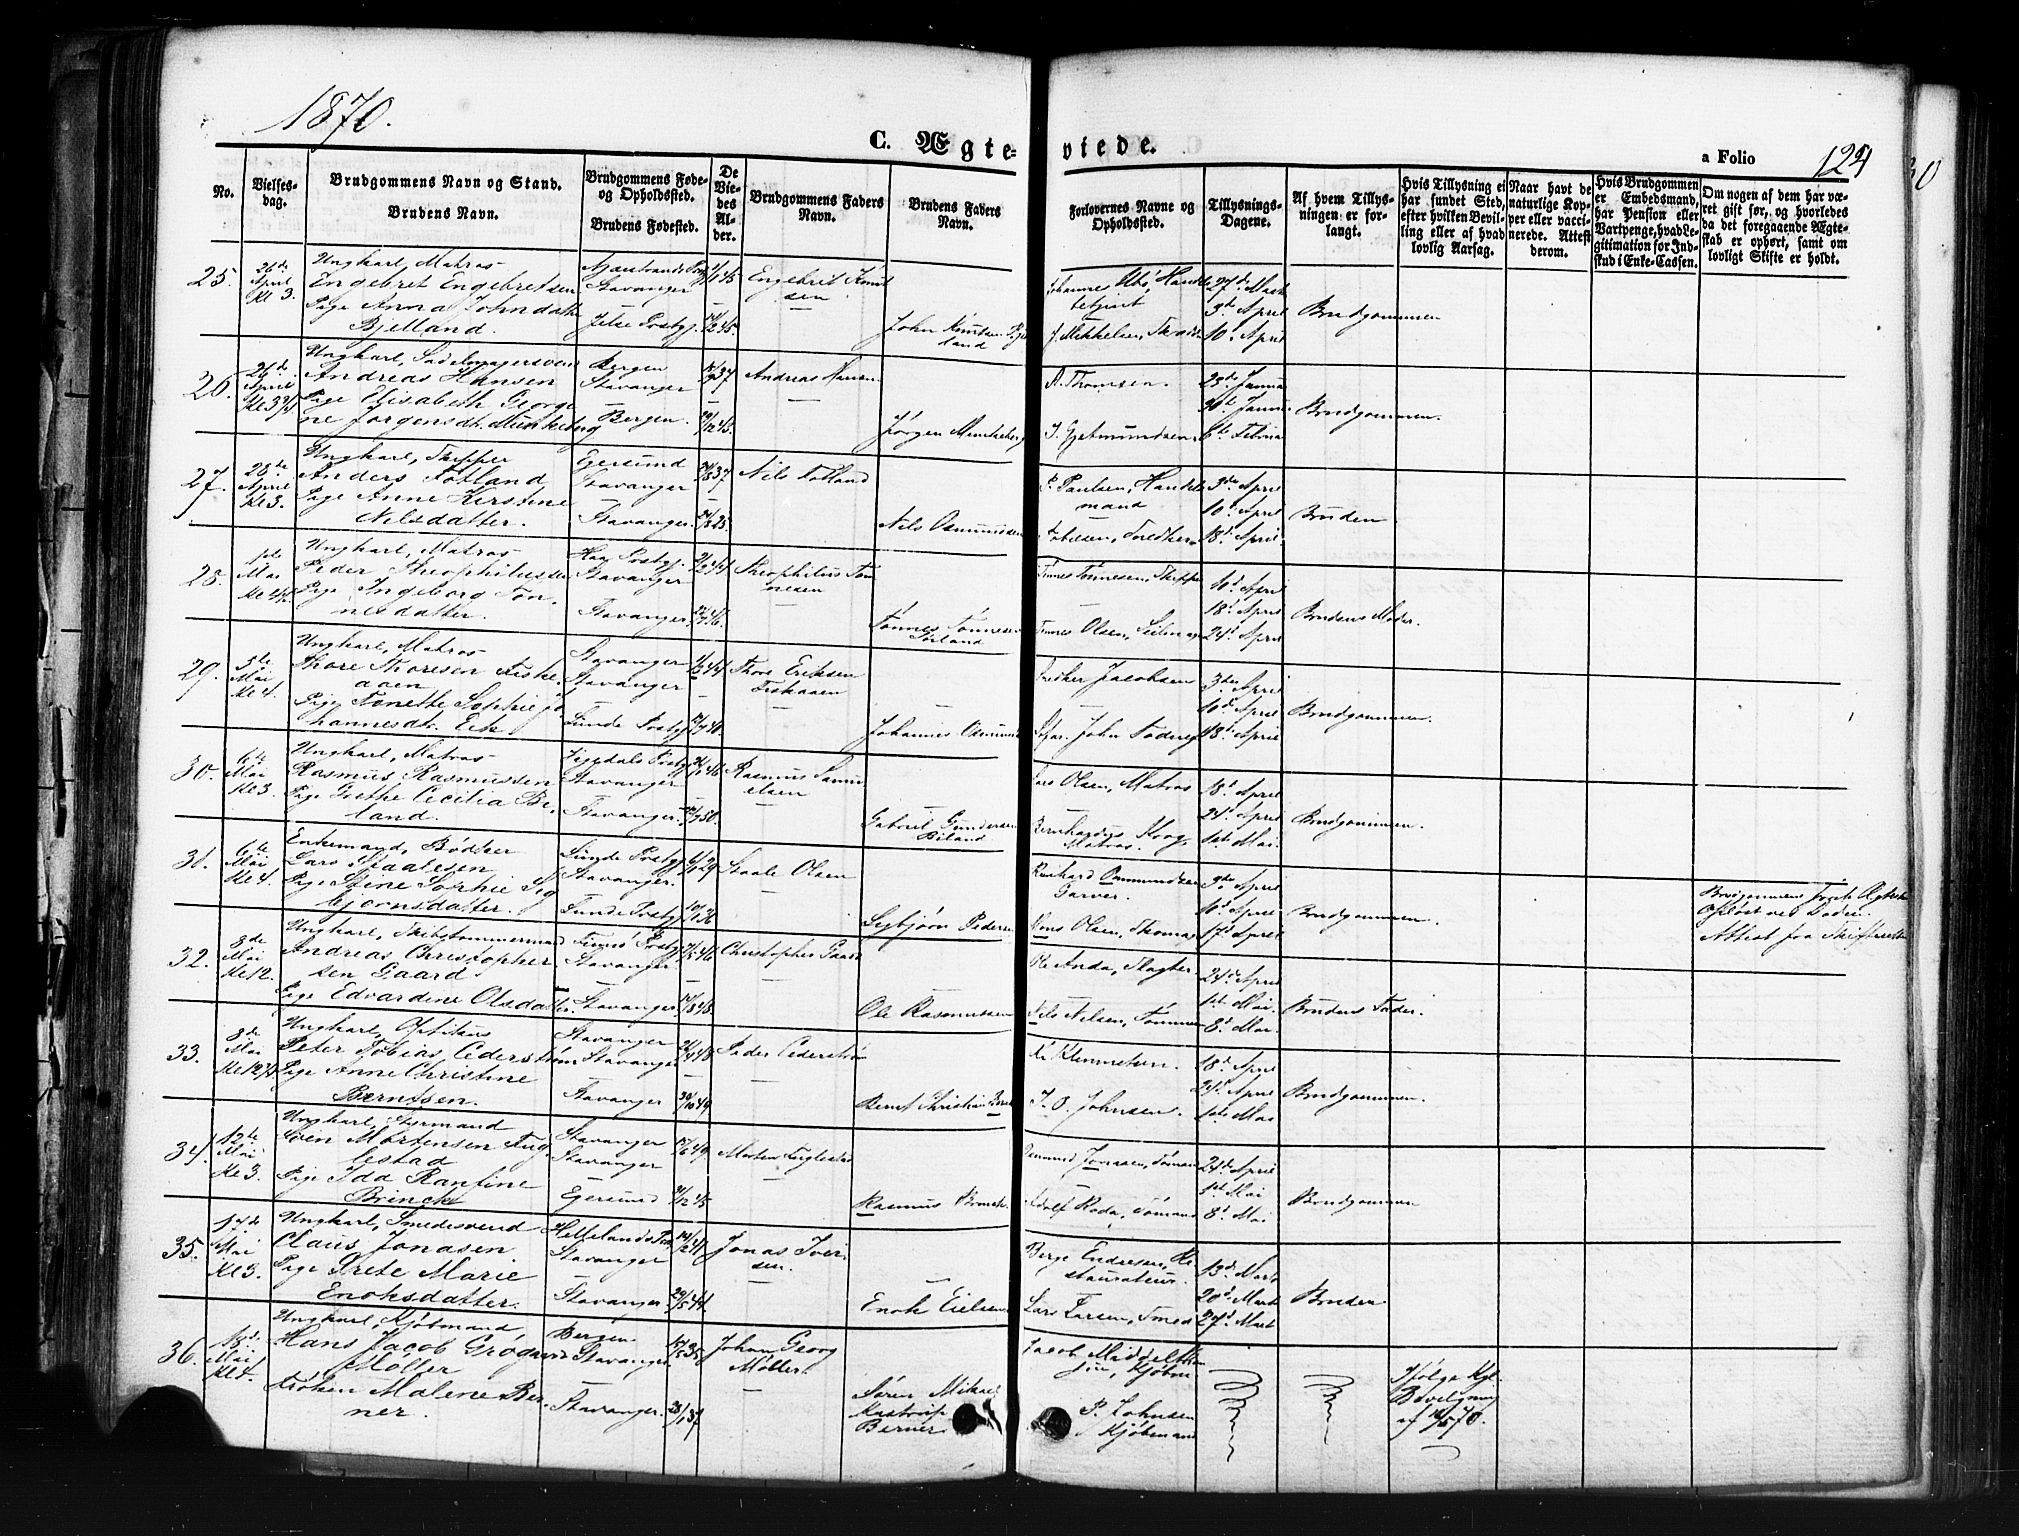 1870.
C. Ægte-
viede.
a Folio
124
No.
Vielses-
dag.
Brudgommens Navn og Stand.
Brudens Navn.
Brudgommens Føde-
og Opholdssted.
Brudens Fødested.
De
Vie-
des
Al-
der.
Brudgommens Faders
Navn.
Brudens Faders
Navn.
Forlovernes Navne og
Opholdssted.
Tillysnings-
Dagene.
Af hvem Tillys-
ningen er for-
langt.
Hvis Tillysning ei
har fundet Sted,
efter hvilken Bevil-
ling eller af hvad
lovlig Aarsag.
Naar havt de
naturlige Kop-
per eller vacci-
nerede. Attest
derom.
Hvis Brudgommen
er Embedsmand,
har Pension eller
Vartpenge, hvad Le-
gitimation for Ind-
skud i Enke-Cassen.
Om nogen af dem har væ-
ret gift før, og hvorledes
da det foregaaende Ægte-
skab er ophørt, samt om
lovligt Skifte er holdt.
25.
26de
April
Kl 3.
Ungkarl, Matros
Engebret Engebretsen
Pige Anna Johnsdatter
Bjelland.
Stavanger
Jelse Prstgj.
Engebret Knud
sen
John Knudsen Bjel
land
27de Marts
3de April
10. April
Brudgommen
26.
26de
April
Kl 3 3/4
Ungkarl, Sadelmagersvend
Andreas Hansen
Pige Elisabeth George
ne Jörgensdt. Munkeberg
Bergen
Stavanger
Bergen.
Andreas Hansen
Jörgen Munkeberg
A. Thomsen.
J. Gjetmundsen
23de Januar
30te Januar
6te Februar
Brudgommen.
27.
28de
April
Kl 3.
Ungkarl, Skipper
Anders Fotland
Pige Anne Kirstine
Nilsdatter.
Egersund
Stavanger
Stavanger.
Nils Fotland
Nils Osmundsen
P. Paulsen, Handels
mand
3die April
10d April
18d April.
Bruden.
28.
1ste
Mai
Ungkarl, Matros
Peder Theophiliussen
Pige Ingeborg Tön
nesdatter.
Haa Prstgj.
Stavanger
Stavanger.
Theophilus Tön
nesen
Tönnes Tönnesen
Tönnes Tönnesen, Skipper
Tönnes Olsen, Seilmag
10d April
18d April
24d April
Brudens Moder.
29.
3die
Mai
Kl 4.
Ungkarl, Matros
Thore Thoresen Fiske
aaen
Pige Tonette Sophie Jo
hannesdt. Eek
Stavanger
Stavanger
Sunde Prstgj
Thore Eriksen
Fiskaaen
Johannes Osmund
Jacobsen
3die April
10d April
18d April
Brudgommen.
30.
6te
Mai
Kl 3.
Ungkarl, Matros
Rasmus Rasmussen
Pige Grethe Cecilia Bi,
land.
Stavanger
Stavanger.
Rasmus Samu
elsen
Gabriel Gundersen
Biland
Lars Olsen, Matros
Matros.
18d April
24d April
1ste Mai.
Brudgommen.
31.
6te
Mai
Kl 4.
Enkemand, Bödker
Lars Staalesen
Pige Stine Sophie Sig
björnsdatter.
Sunde Prstgj
Stavanger.
Sunde Prstgj
Staale Olsen
Sigbjörn Pedersen
Reinhard Osmundsen
Garver.
Mons Olsen, Thomas
3die April
10d April
17d April
Brudgommen.
Brudgommens förste Ægteskab
Oplöst ved Döden.
Attest fra Skifteretten
32.
8de
Mai
Kl 12.
Ungkarl, Skibstömmermand
Andreas Christopher
sen Gaard
Pige Edvardine Olsdatter
Stavanger.
Stavanger.
Christopher Gaard
Ole Rasmussen
Ole Anda, Slagter.
Nils Nilsen, Tömmerm
24d April
1ste Mai.
8d Mai.
Brudens Fader.
33.
8de
Mai
Kl 12 1/2
Ungkarl, Optikus
Peter Tobias Cederström
Pige Anne Christine
Berntsen.
Stavanger
Stavanger
Stavanger
Peder Cederström
Bernt Christian Bernt
Klemmetsen.
J. O. Johnsen.
18d April
24d April
1ste Mai
Brudgommen.
34.
12te
Mai
Kl 3.
Ungkarl, Styrmand
Sven Mortensen Fug
lestad
Pige Ida Rantine
Brinch
Stavanger
Stavanger
Egersund
Morten Fuglestad
Rasmus Brinch
Osmund Jonassen, Sömand
Adolf Roda, Sömand
24d April
1ste Mai
8d Mai
Brudgommen
35.
17de
Mai
Kl 3.
Ungkarl, Smedesvend
Claus Jonasen
Pige Grete Marie
Enoksdatter.
Hellelands Prst
Stavanger
Stavanger
Jonas Iver
sen.
Enok Eielsen
Berge Endresen, Re
staurateur.
Lars Larsen, Smed
13d Marts
20d Marts
27d Marts
Bruden
36.
18d
Mai
Kl 4.
Ungkarl, Kjöbmand,
Hans Jacob Grögaard
Möller
Fröken Malene Ber
ner.
Bergen
Stavanger
Stavanger.
Johan Georg
Möller
Sören Mikael
Kastrup
Berner
Jacob Middelthon
Kjöbm
P. Johnsen
Kjöbmand
Ifölge Kgl.
Bevilgning